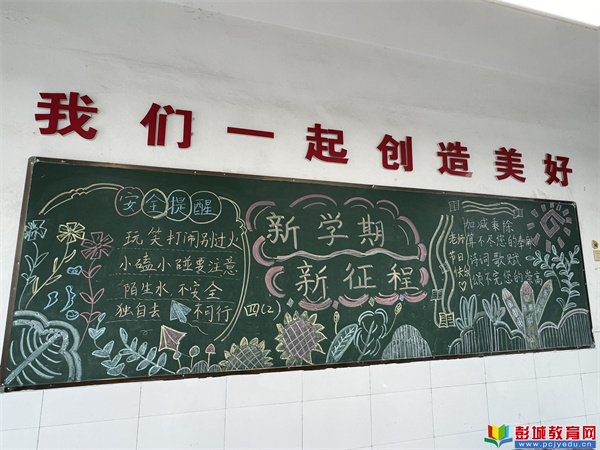 我们一起创造美好
安全提醒
玩笑打闹别过火
小磕小碰要注意
陌生水 不安全
独自去 不可行
新学期
新征程
四(2)
老师
节日
快乐
加减乘除
算不尽您的奉献
诗词歌赋
颂不完您的崇高
彭城教育网
www.pcjyedu.cn